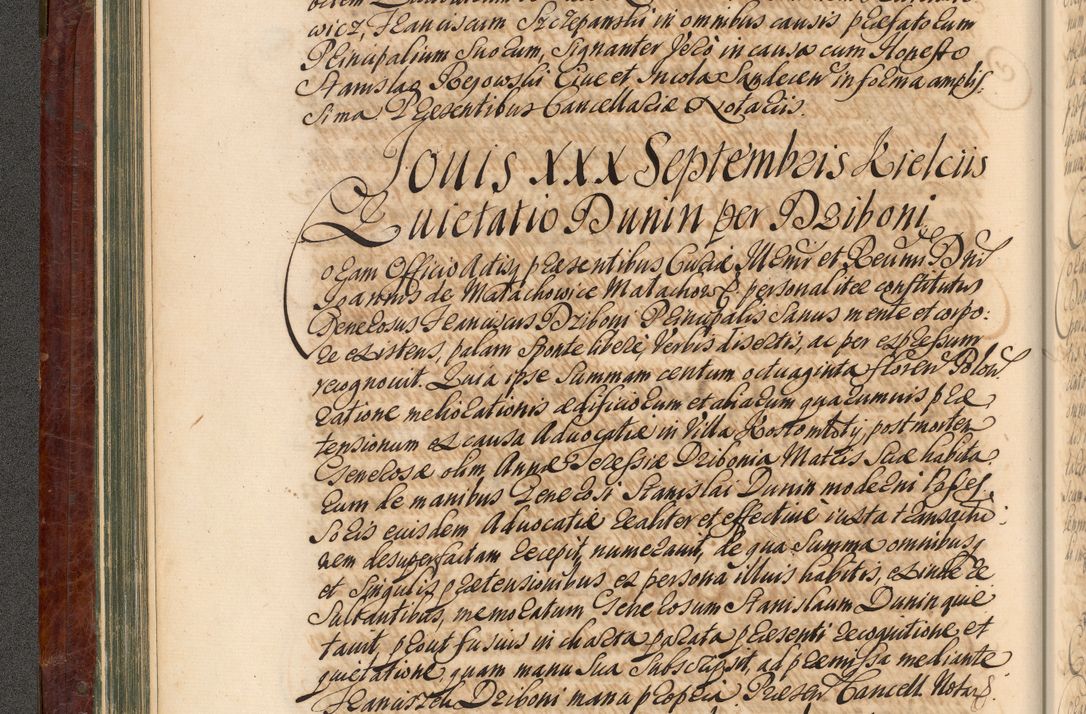 wicz, Franciscum Szczepanski in omnibus causis præfatorum
Principalium Suorum, Signanter Vero in causa cum Honesto
Stanislao Regowski Cive et Incola Sandecen in forma amplis,
sima Præsentibus Cancellariæ Notariis.
Jouis XXX Septembris Kielciis
Quietatio Dunin per Dziboni
Coram Officio Actisq præsentibus Curiæ Illmi et Rdmi Dni
Joannis de Małachowice Małachows personaliter constitutus
Generosus Franciscus Dziboni Principalis Sanus mente et corpo:
re existens, palam Sponte libere, Verbis disertis, ac per expressum
recognouit. Quia ipse Summam centum octuaginta Floren Polon
ratione meliorationis ædificiorum et aliarum quarumuis præ
tensionum ex causa Aduocatiæ in Villa Kostomłoty, post mortem
Generosæ olim Annæ Teressiæ Dzibonia Matris Suæ habita
rum de manibus Generosi Stanislai Dunin moderni Posses,
Soris eiusdem Aduocatiæ realiter et effectiue iuxta transactio:
nem desuper factam recepit, numerauit, de qua Summa omnibusq
et Singulis prætensionibus ex persona illius habitis, exinde re
Sultantibus, memoratum Generosum Stanislaum Dunin quie
tauit, prout fusius in charta parata præsenti recognitione et
quietatione quam manu Sua Subscripsit, ad præmissa mediante
Franciszek Dziboni manu propria. Præsen Cancell. Notar.